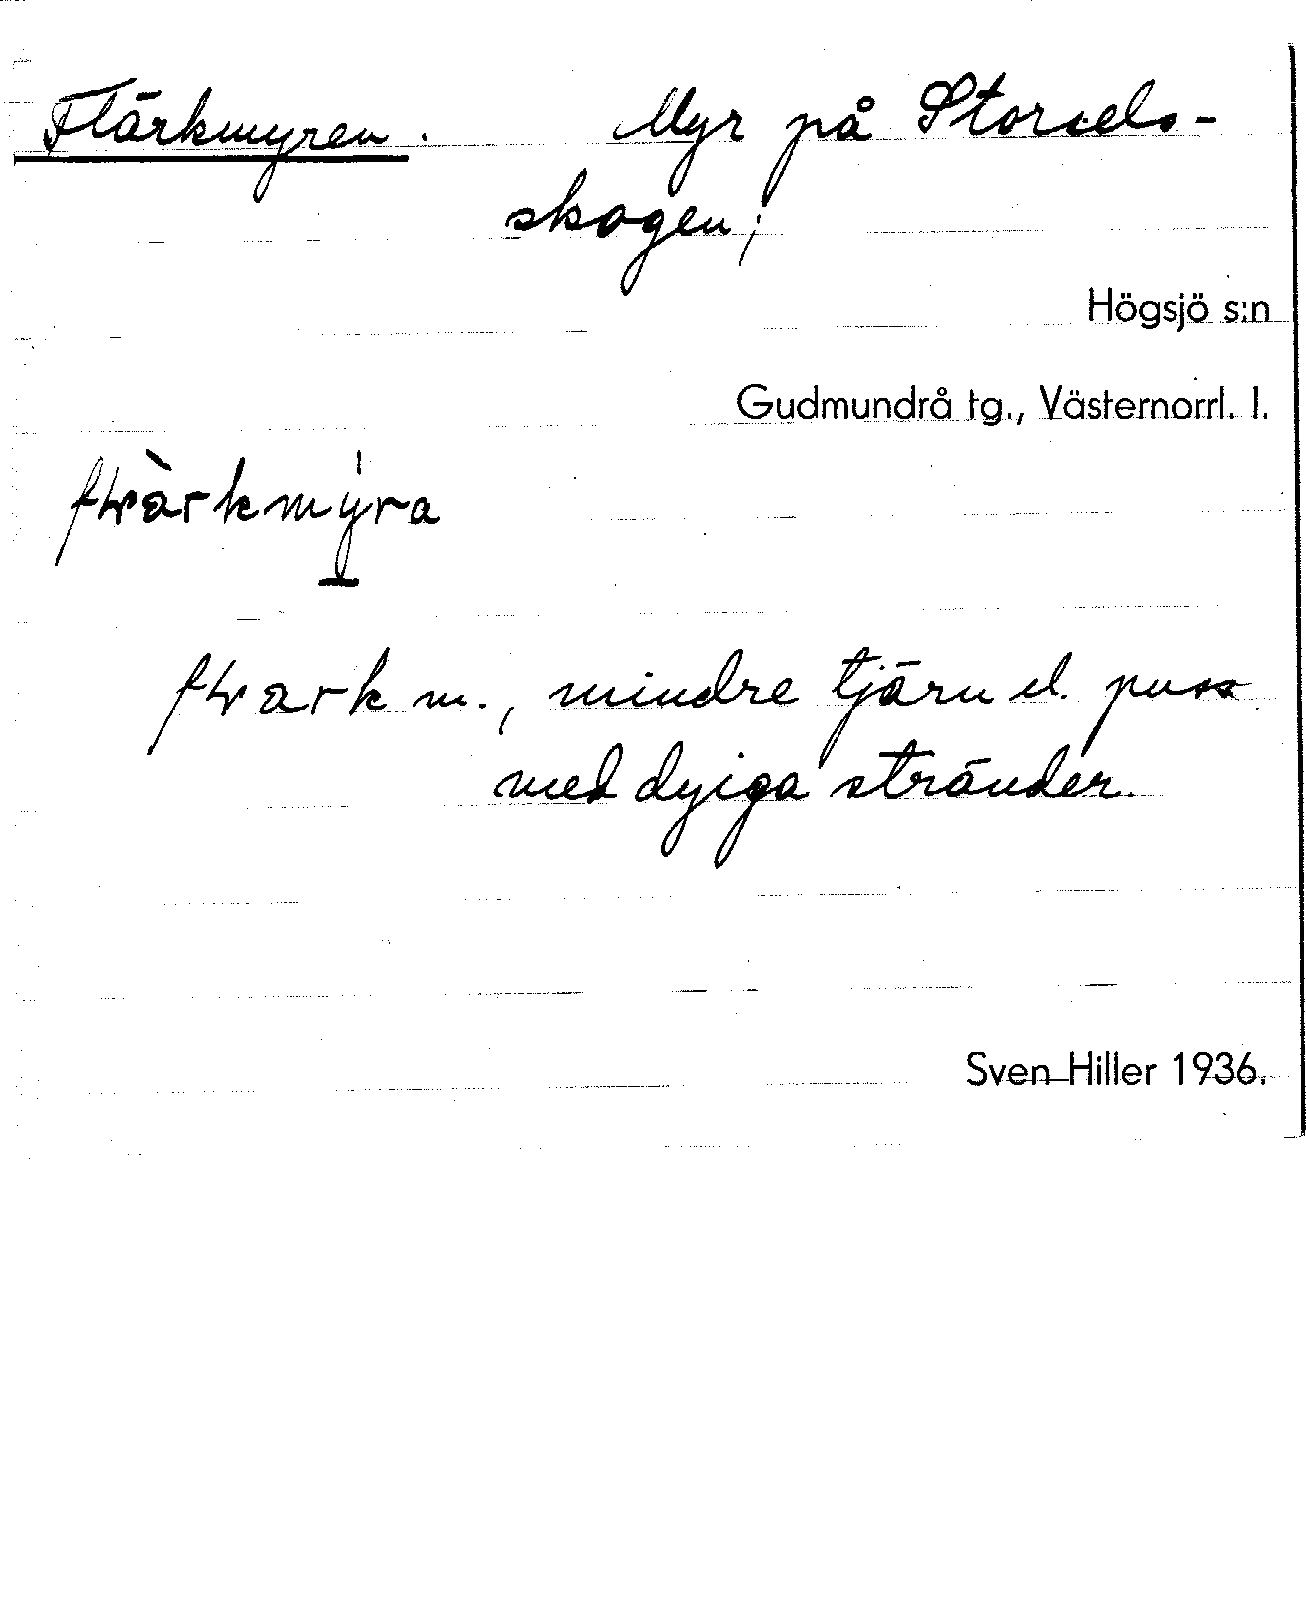 Flärkmyren. Myr på Storsels-
skogen;
Högsjö s:n
Gudmundrå tg., Västernorrl. l.
mindre tjärn el. puss
med dyiga stränder.
Sven Hiller 1936.